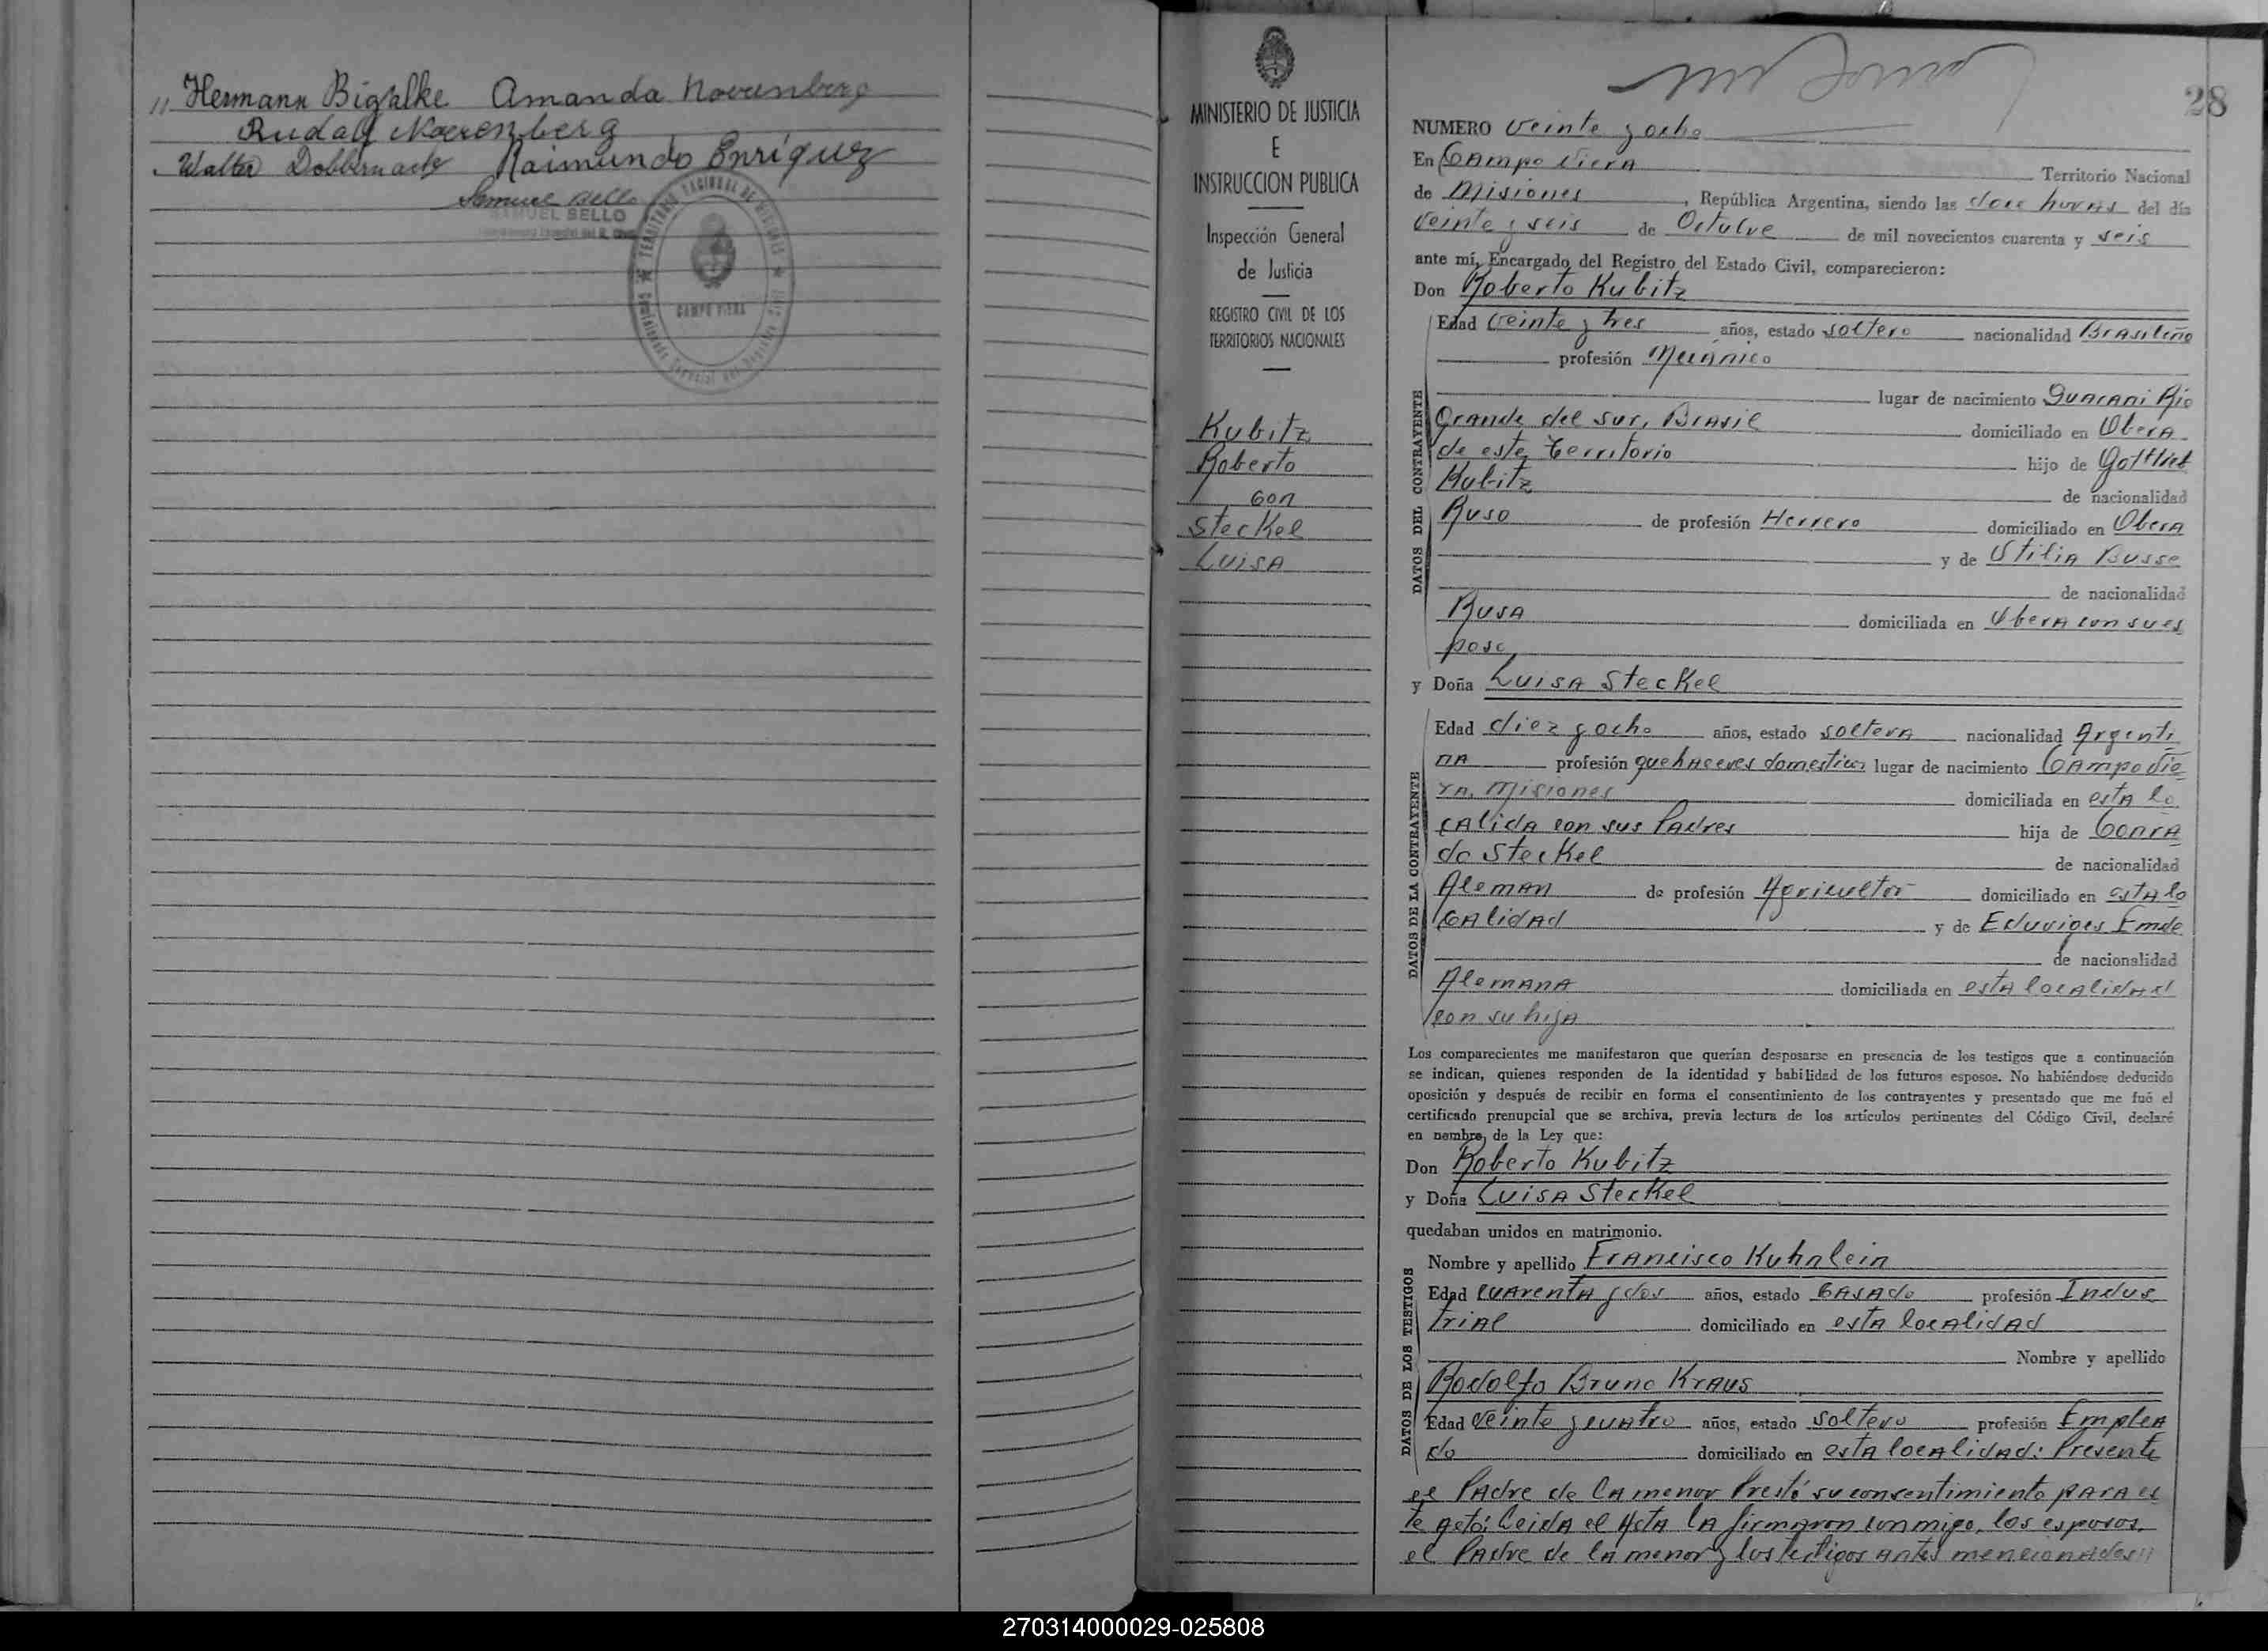 " Hermann Bigalke Amanda Novenberg
Rudolf Noerenberg
Walter Raimundo Enríquez
Samuel Sello
SAMUEL SELLO
TERRITORIO NACIONAL DE MISIONES
CAMPO VIERA
MINISTERIO DE JUSTICIA
E
INSTRUCCION PUBLICA
Inspección General
de Justicia
REGISTRO CIVIL DE LOS
TERRITORIOS NACIONALES
Kubitz
Roberto
con
Steckel
Luisa
28
NUMERO veinte y ocho
En Campo Viera Territorio Nacional
de Misiones, República Argentina, siendo las doce horas del día
veinte y seis de Octubre de mil novecientos cuarenta y seis
ante mí, Encargado del Registro del Estado Civil, comparecieron:
Don Roberto Kubitz
DATOS DEL CONTRAYENTE
Edad veinte y tres años, estado soltero nacionalidad Brasileño
profesión Mecánico
lugar de nacimiento Guarani Rio
Grande del sur, Brasil domiciliado en Obera
de este territorio hijo de Gottlieb
Kubitz de nacionalidad
Ruso de profesión Herrero domiciliado en Obera
y de Otilia Busse
de nacionalidad
Rusa domiciliada en Obera con su es
poso
y Doña Luisa Steckel
DATOS DE LA CONTRAYENTE
Edad diez y ocho años, estado soltera nacionalidad Argenti
na profesión quehaceres domesticos lugar de nacimiento Campo Vie
ra, Misiones domiciliada en esta lo
calida con sus Padres hija de Conra
do Steckel de nacionalidad
Aleman de profesión Agricultor domiciliado en esta lo
calidad y de Eduviges Emde
de nacionalidad
Alemana domiciliada en esta localidad
con su hija
Los comparecientes me manifestaron que querían desposarse en presencia de los testigos que a continuación
se indican, quienes responden de la identidad y habilidad de los futuros esposos. No habiéndose deducido
oposición y después de recibir en forma el consentimiento de los contrayentes y presentado que me fué el
certificado prenupcial que se archiva, previa lectura de los artículos pertinentes del Código Civil, declaré
en nombre de la Ley que:
Don Roberto Kubitz
y Doña Luisa Steckel
quedaban unidos en matrimonio.
DATOS DE LOS TESTIGOS
Nombre y apellido Francisco Kuhnlein
Edad cuarenta y dos años, estado Casado profesión Indus
trial domiciliado en esta localidad
Nombre y apellido
Rodolfo Bruno Kraus
Edad veinte y cuatro años, estado soltero profesión Emplea
do domiciliado en esta localidad: Presente
el Padre de la menor Prestó su consentimiento para es
te acto: Leida el Acta la firmaron conmigo, los esposos,
el Padre de la menor y los testigos antes mencionados "
270314000029-025808